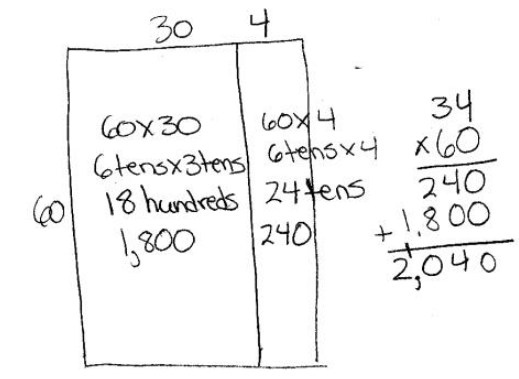 30 4
60
60x30
6tensx3tens
18 hundreds
1,800
60x4
6tensx4
24 tens
240
34
x60
240
+1,800
2,040